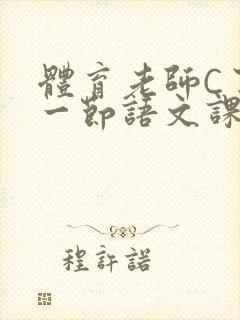 體育老師C
一節語文課
程許諾